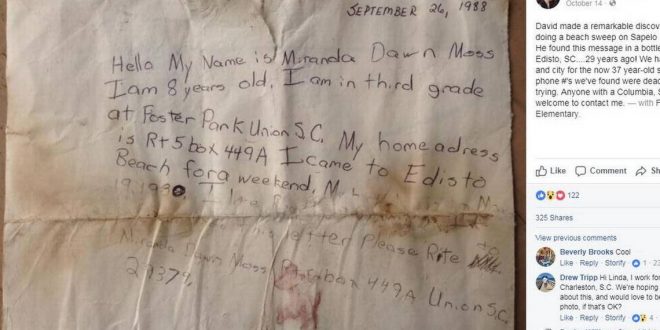 SEPTEMBER 26, 1988
Hello My Name is Miranda Dawn Moss
I am 8 years old. I am in third grade
at Foster Park Union S.C. My home adress
is Rt 5 box 449A I came to Edisto
Beach for a weekend,
letter Please Rite to
Miranda Dawn Moss Rt 5 box 449A Union S.C.
29379
October 14
David made a remarkable discov
doing a beach sweep on Sapelo
He found this message in a bottle
Edisto, SC....29 years ago! We ha
and city for the now 37 year-old s
phone #'s we've found were dead
trying. Anyone with a Columbia, S
welcome to contact me. — with F
Elementary.
Like Comment Sh
122
325 Shares
View previous comments
Beverly Brooks Cool
Like · Reply · Storify · 1 · 23
Drew Tripp Hi Linda, I work for
Charleston, S.C. We're hoping
about this, and would love to be
photo, if that's OK?
Like · Reply · Storify · 4 ·